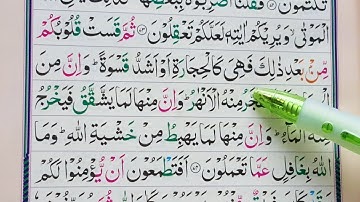 تَكْتُمُوْنَ فَقُلْنَا اضْرِبُوْهُ بِبَعْضِهَا
الْمَوْتٰى ۙ وَيُرِيْكُمْ اٰيٰتِهٖ لَعَلَّكُمْ تَعْقِلُوْنَ ۝۷۳ ثُمَّ قَسَتْ قُلُوْبُكُمْ
مِّنْۢ بَعْدِ ذٰلِكَ فَهِىَ كَالْحِجَارَةِ اَوْ اَشَدُّ قَسْوَةً ؕ وَاِنَّ مِنَ
مِنْهُ الْاَنْهٰرُ ؕ وَاِنَّ مِنْهَا لَمَا يَشَّقَّقُ فَيَخْرُجُ
مِنْهُ الْمَآءُ ؕ وَاِنَّ مِنْهَا لَمَا يَهْبِطُ مِنْ خَشْيَةِ اللّٰهِ ؕ وَمَا
اللّٰهُ بِغَافِلٍ عَمَّا تَعْمَلُوْنَ ۝۷۴ اَفَتَطْمَعُوْنَ اَنْ يُّؤْمِنُوْا لَكُمْ